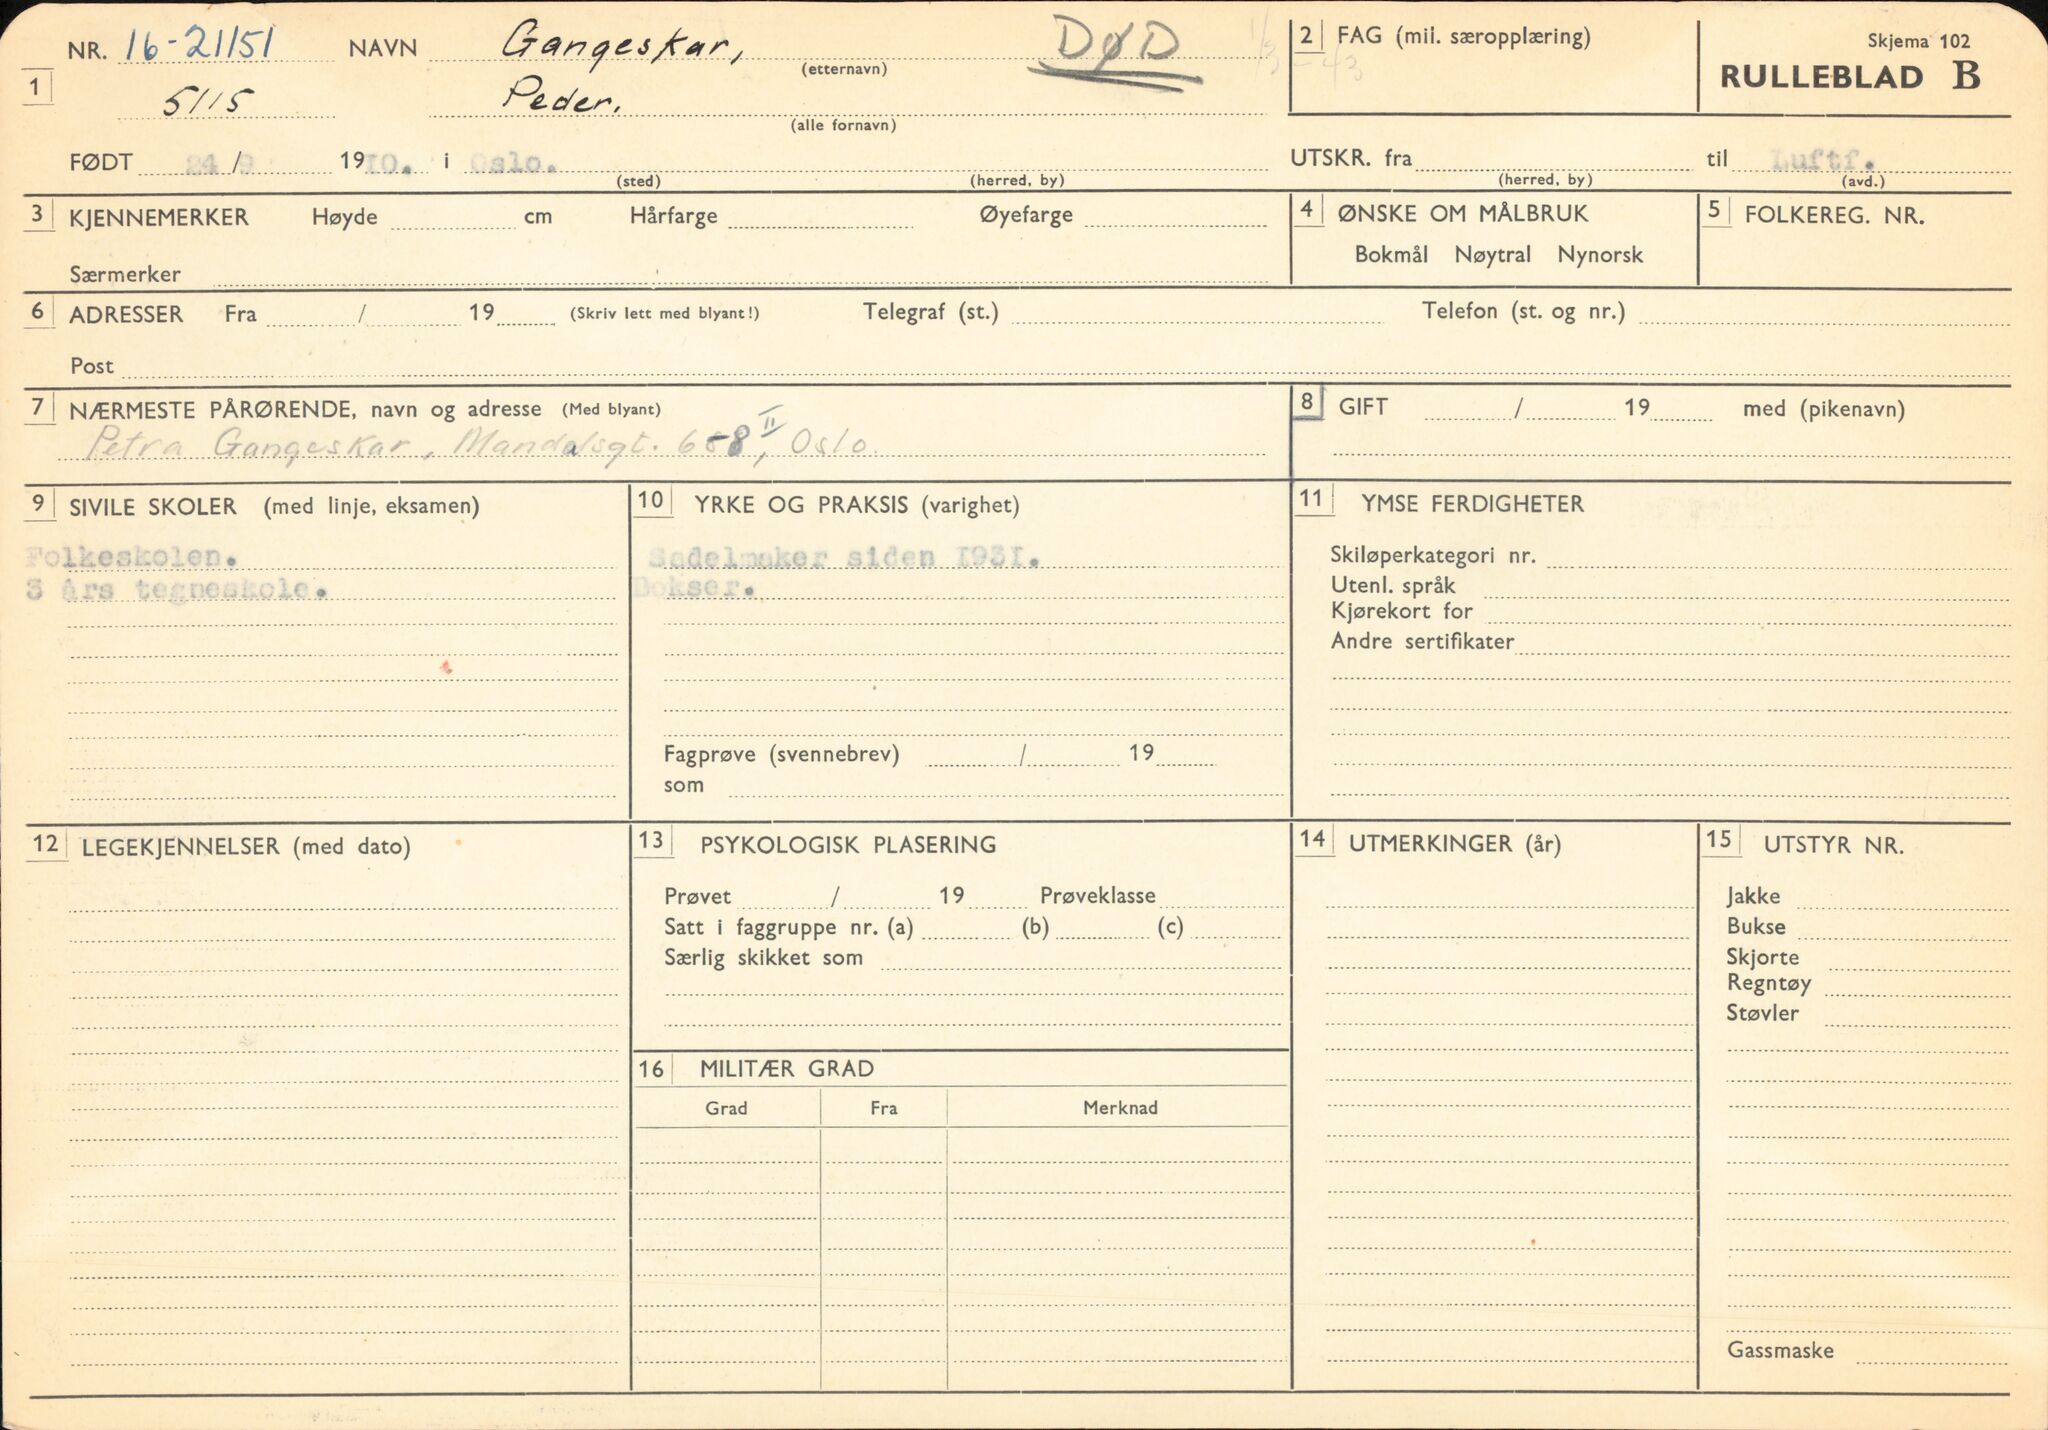 1 NR. 16-21151 NAVN Gangeskar, (etternavn) DØD 1/3 - 43
5115 Peder. (alle fornavn)
FØDT 24/9 1910. i Oslo. (sted) (herred, by)
2 FAG (mil. særopplæring)
Skjema 102
RULLEBLAD B
UTSKR. fra (herred, by) til Luftf. (avd.)
3 KJENNEMERKER Høyde cm Hårfarge Øyefarge
Særmerker
4 ØNSKE OM MÅLBRUK
Bokmål Nøytral Nynorsk
5 FOLKEREG. NR.
6 ADRESSER Fra / 19 (Skriv lett med blyant!) Telegraf (st.) Telefon (st. og nr.)
Post
7 NÆRMESTE PÅRØRENDE, navn og adresse (Med blyant)
Petra Gangeskar, Mandalsgt. II, Oslo.
8 GIFT / 19 med (pikenavn)
9 SIVILE SKOLER (med linje, eksamen)
Folkeskolen.
3 års tegneskole.
10 YRKE OG PRAKSIS (varighet)
Sadelmaker siden 1931.
Bokser.
Fagprøve (svennebrev) / 19
som
11 YMSE FERDIGHETER
Skiløperkategori nr.
Utenl. språk
Kjørekort for
Andre sertifikater
12 LEGEKJENNELSER (med dato)
13 PSYKOLOGISK PLASERING
Prøvet / 19 Prøveklasse
Satt i faggruppe nr. (a) (b) (c)
Særlig skikket som
14 UTMERKINGER (år)
15 UTSTYR NR.
Jakke
Bukse
Skjorte
Regntøy
Støvler
Gassmaske
16 MILITÆR GRAD
Grad Fra Merknad